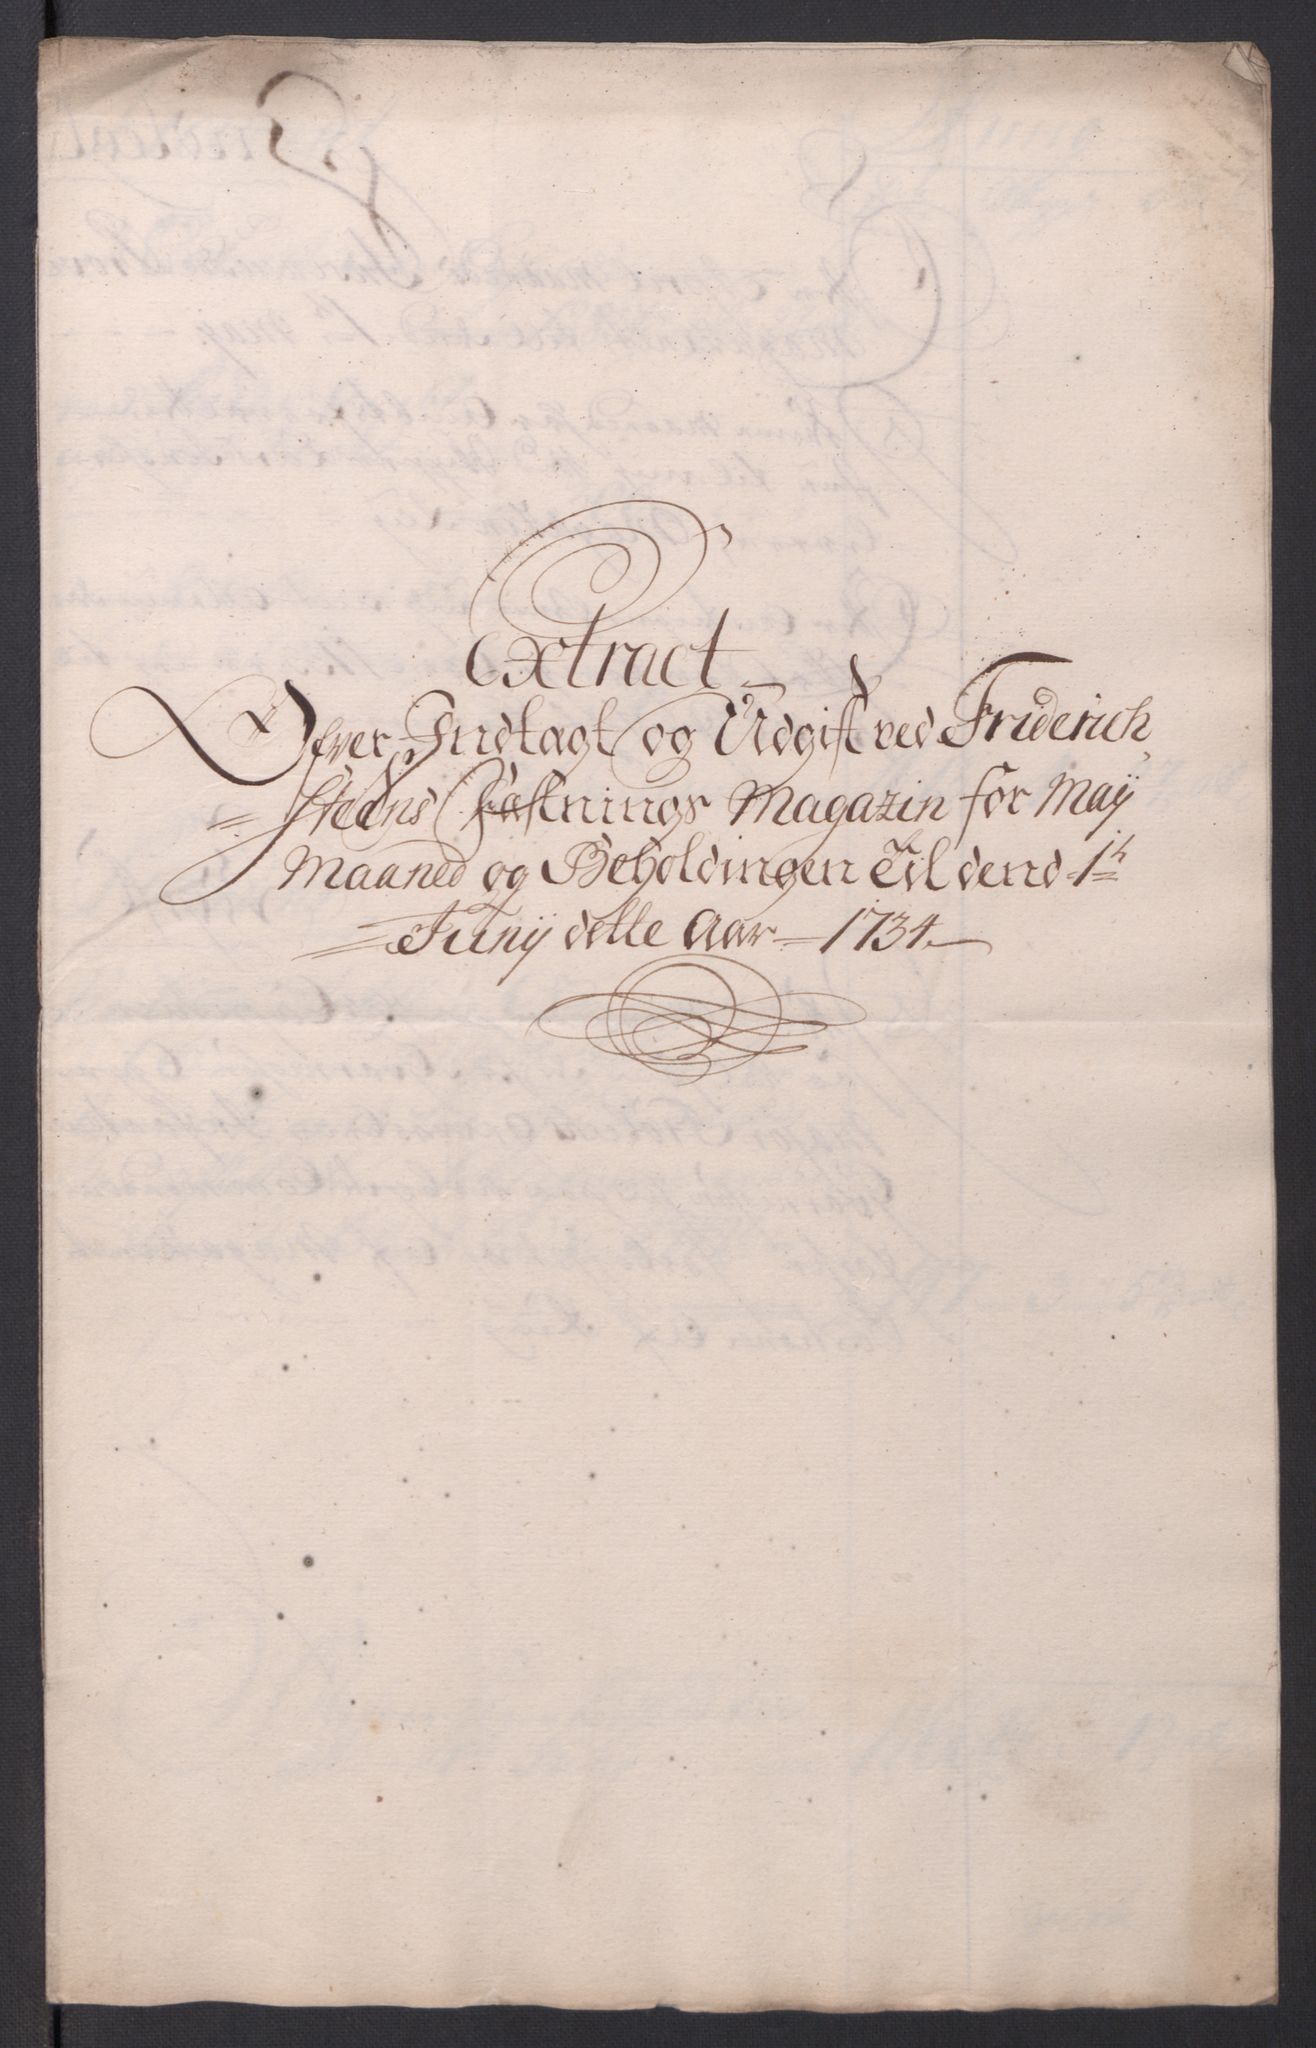 Extract
Ofver Indtagt og Udgift ved Friderich
= Steens Fæstnings Magazin for Maÿ
Maaned og Beholdingen til dend 1te
= Junÿ dette Aar 1734.